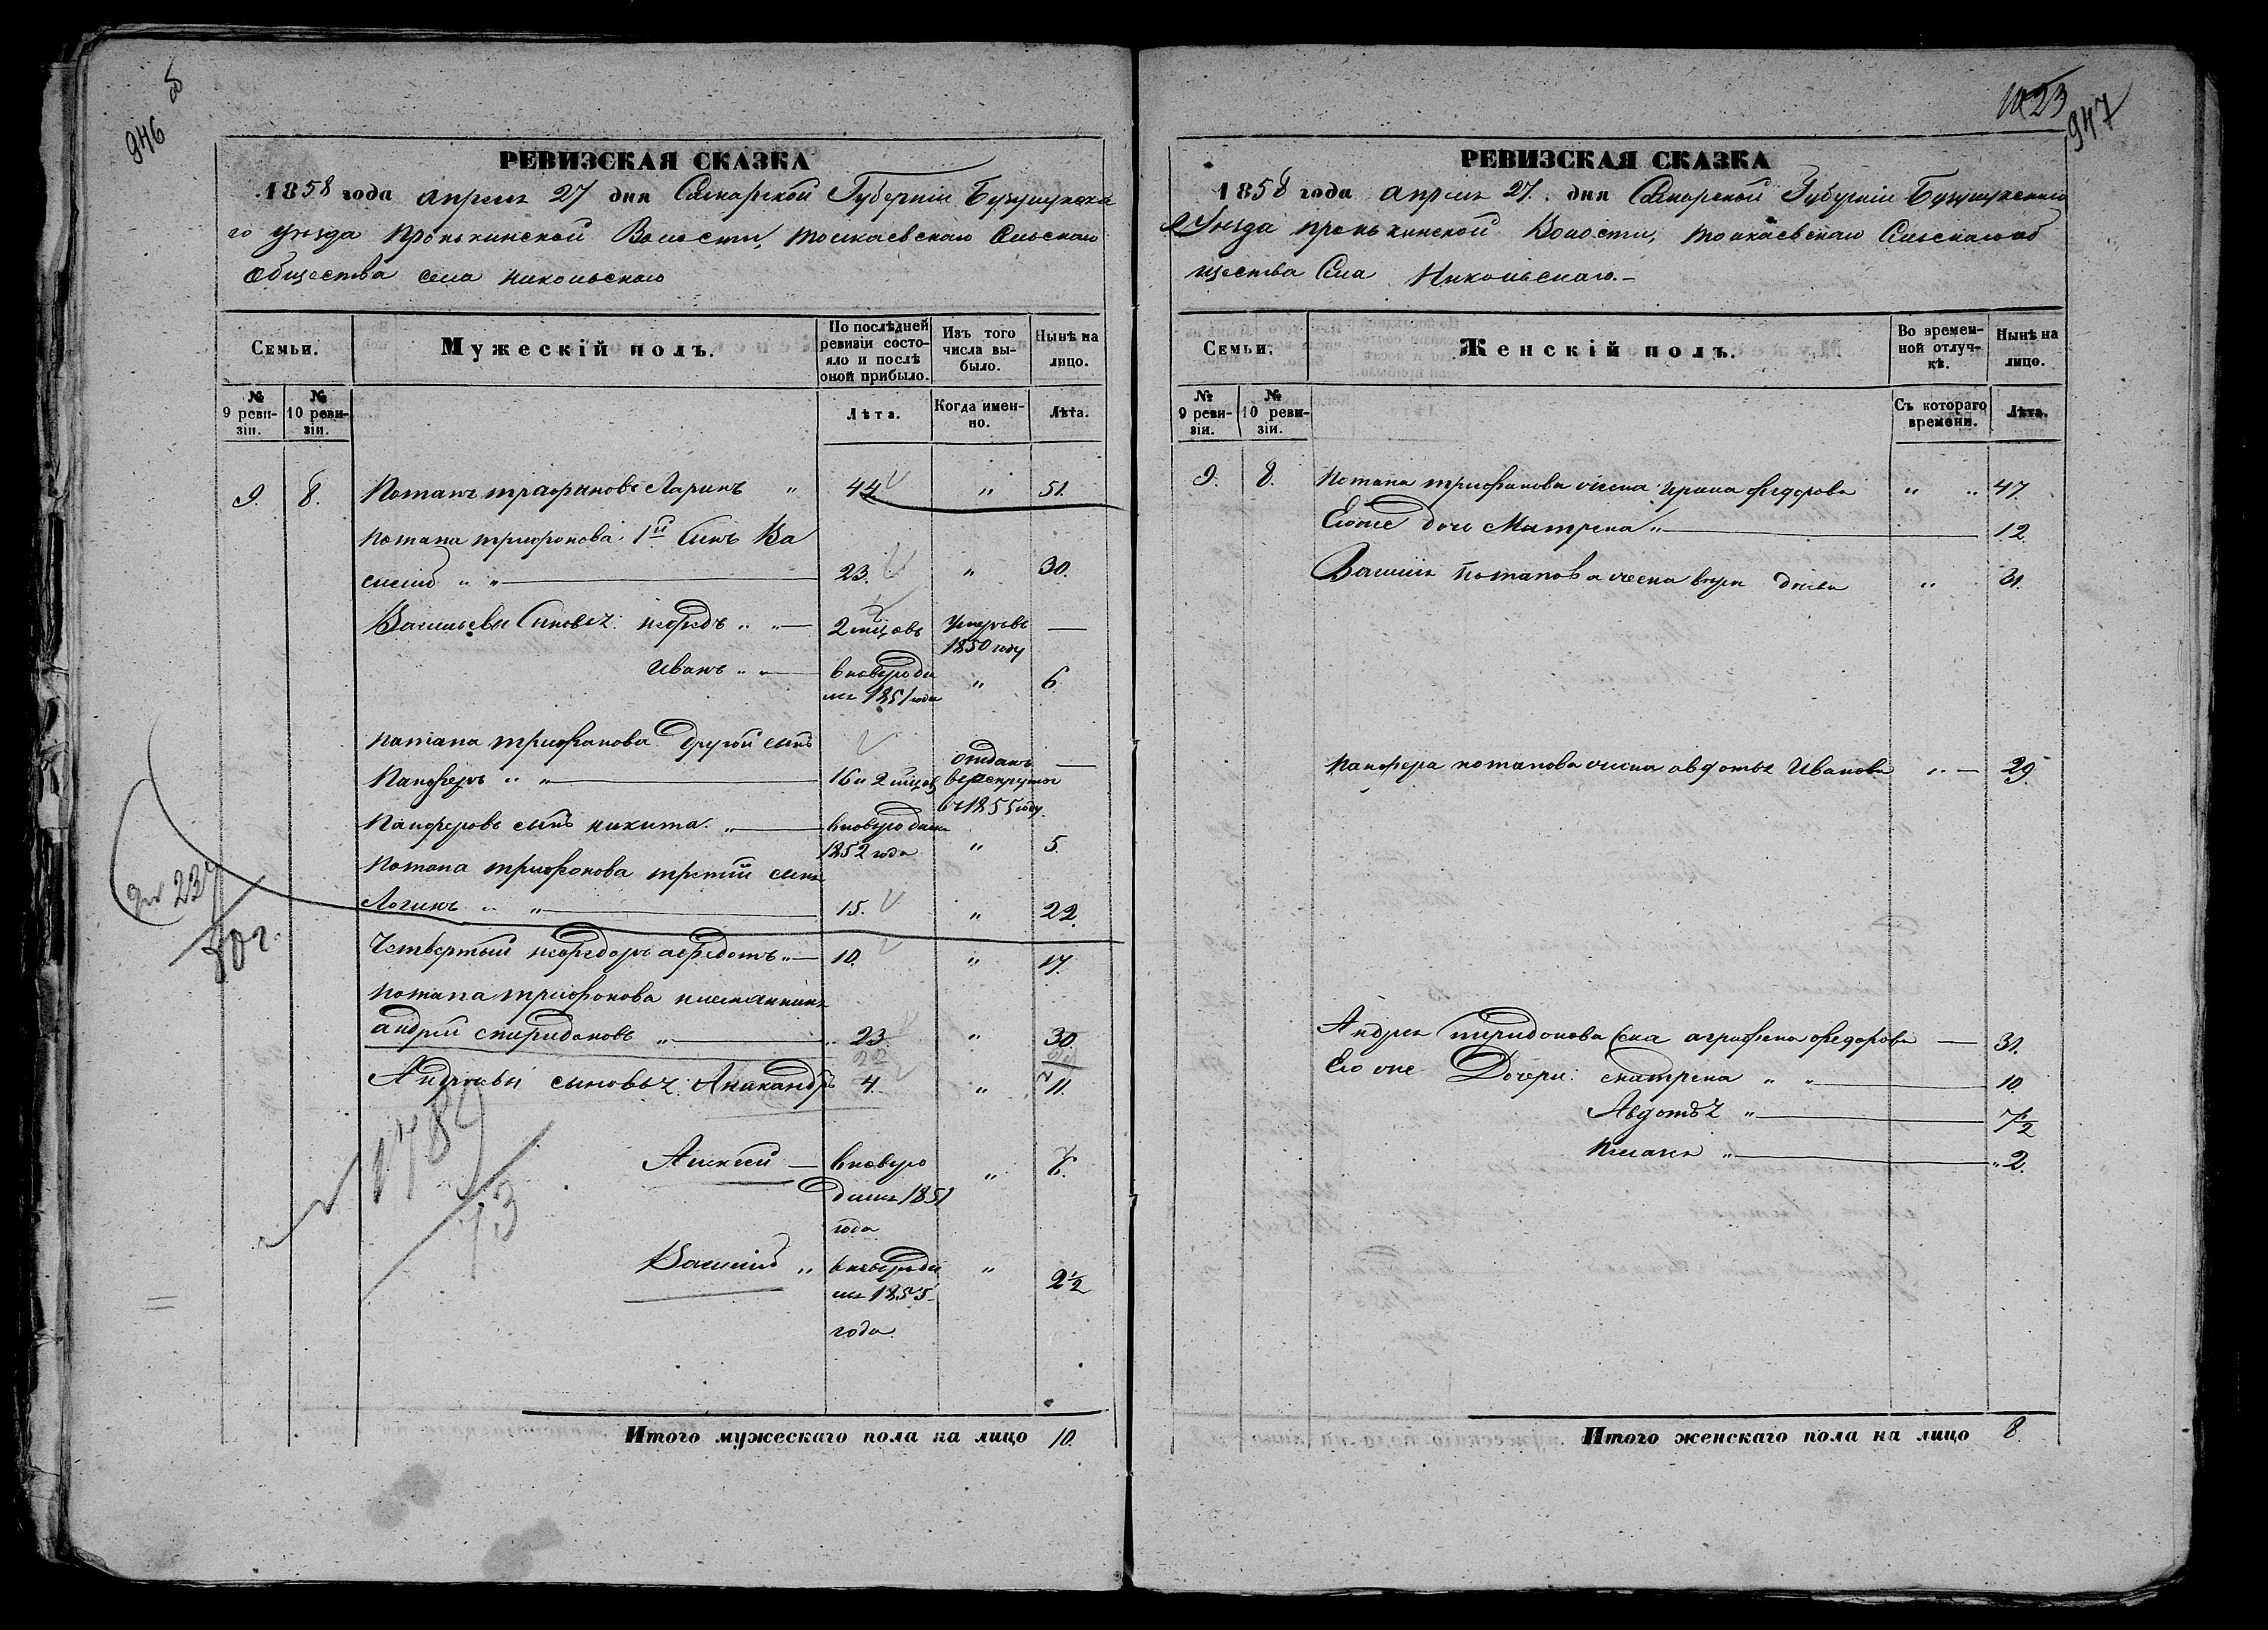 946
РЕВИЗСКАЯ СКАЗКА
1858 года апреля 27 дня Самарской Губернии Бузулукска
го уезда Пронькинской Волости, Толкаевскаго Сельскаго
Общества села Никольскаго
Семьи.
Мужескій полъ.
По послѣдней ревизіи состояло и послѣ оной прибыло.
Изъ того числа выбыло.
Нынѣ на лицо.
№ 9 ревизіи.
№ 10 ревизіи.
Лѣта.
Когда именно.
Лѣта.
9. 8. Потапъ трифановъ Ларинъ " 44 " 51.
Потапа трифонова 1й Сынъ Ва
силій " " 23. " 30.
Васильевы Сыновья: неφедъ " " 2 мѣцовъ Умеръ въ 1850 году —
Иванъ " " вновь роди
лся 1851 года " 6.
потапа трифанова другой сынъ
Панферъ " " 16 и 2 мѣцов отданъ
в рекруты
в 1855 году. —
Панферовъ сынъ никита. " вновь родился
1852 года " 5.
Потапа трифонова третий сынъ
Логинъ " " 15. " 22.
Четвертый неφедоръ аφедотъ " 10. " 17.
потапа трифонова племянникъ
андрей спиридоновъ " 23. " 30.
22
Андреевы сыновья: Аникандръ 4. " 11.
Алексей — вновь ро
дился 1851
года "
Василий " вновь роди
лся 1855
года " 2½
237
80 г.
1789
73
Итого мужескаго пола на лицо 10.
1023
947
РЕВИЗСКАЯ СКАЗКА
1858 года апреля 27. дня Самарской Губернии Бузулукскаго
Уезда пронькинской Волости, толкаевскаго Сельскаго об
щества Села Никольскаго. –
Семьи.
Женскій полъ.
Во временной отлучкѣ.
Нынѣ на лицо.
№ 9 ревизіи.
№ 10 ревизіи.
Съ котораго времени.
Лѣта.
9. 8. Потапа трифанова жена Ирина федорова " " 47.
Егоже дочь Матрена " 12.
Василья Потапова жена " 31.
панфера потапова жена авдотья Иванова " — 29.
Андрея спиридонова жена аграфена федорова — 31.
Его же Дочери: матрена " " 10.
Авдотья " 7½
Пелагея " " 2.
Итого женскаго пола на лицо 8.